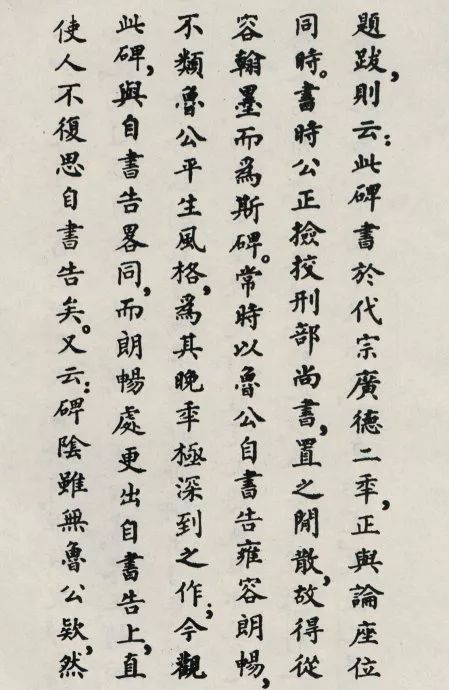 題跋,則云:此碑書於代宗廣德二秊,正與論座位
同時。書時公正撿挍刑部尚書,置之閒散,故得從
容翰墨而爲斯碑。常時以魯公自書告雍容朗暢,
不類魯公平生風格,爲其晚秊極深到之作;今觀
此碑,與自書告畧同,而朗暢處更出自書告上,直
使人不復思自書告矣。又云:碑陰雖無魯公欵,然